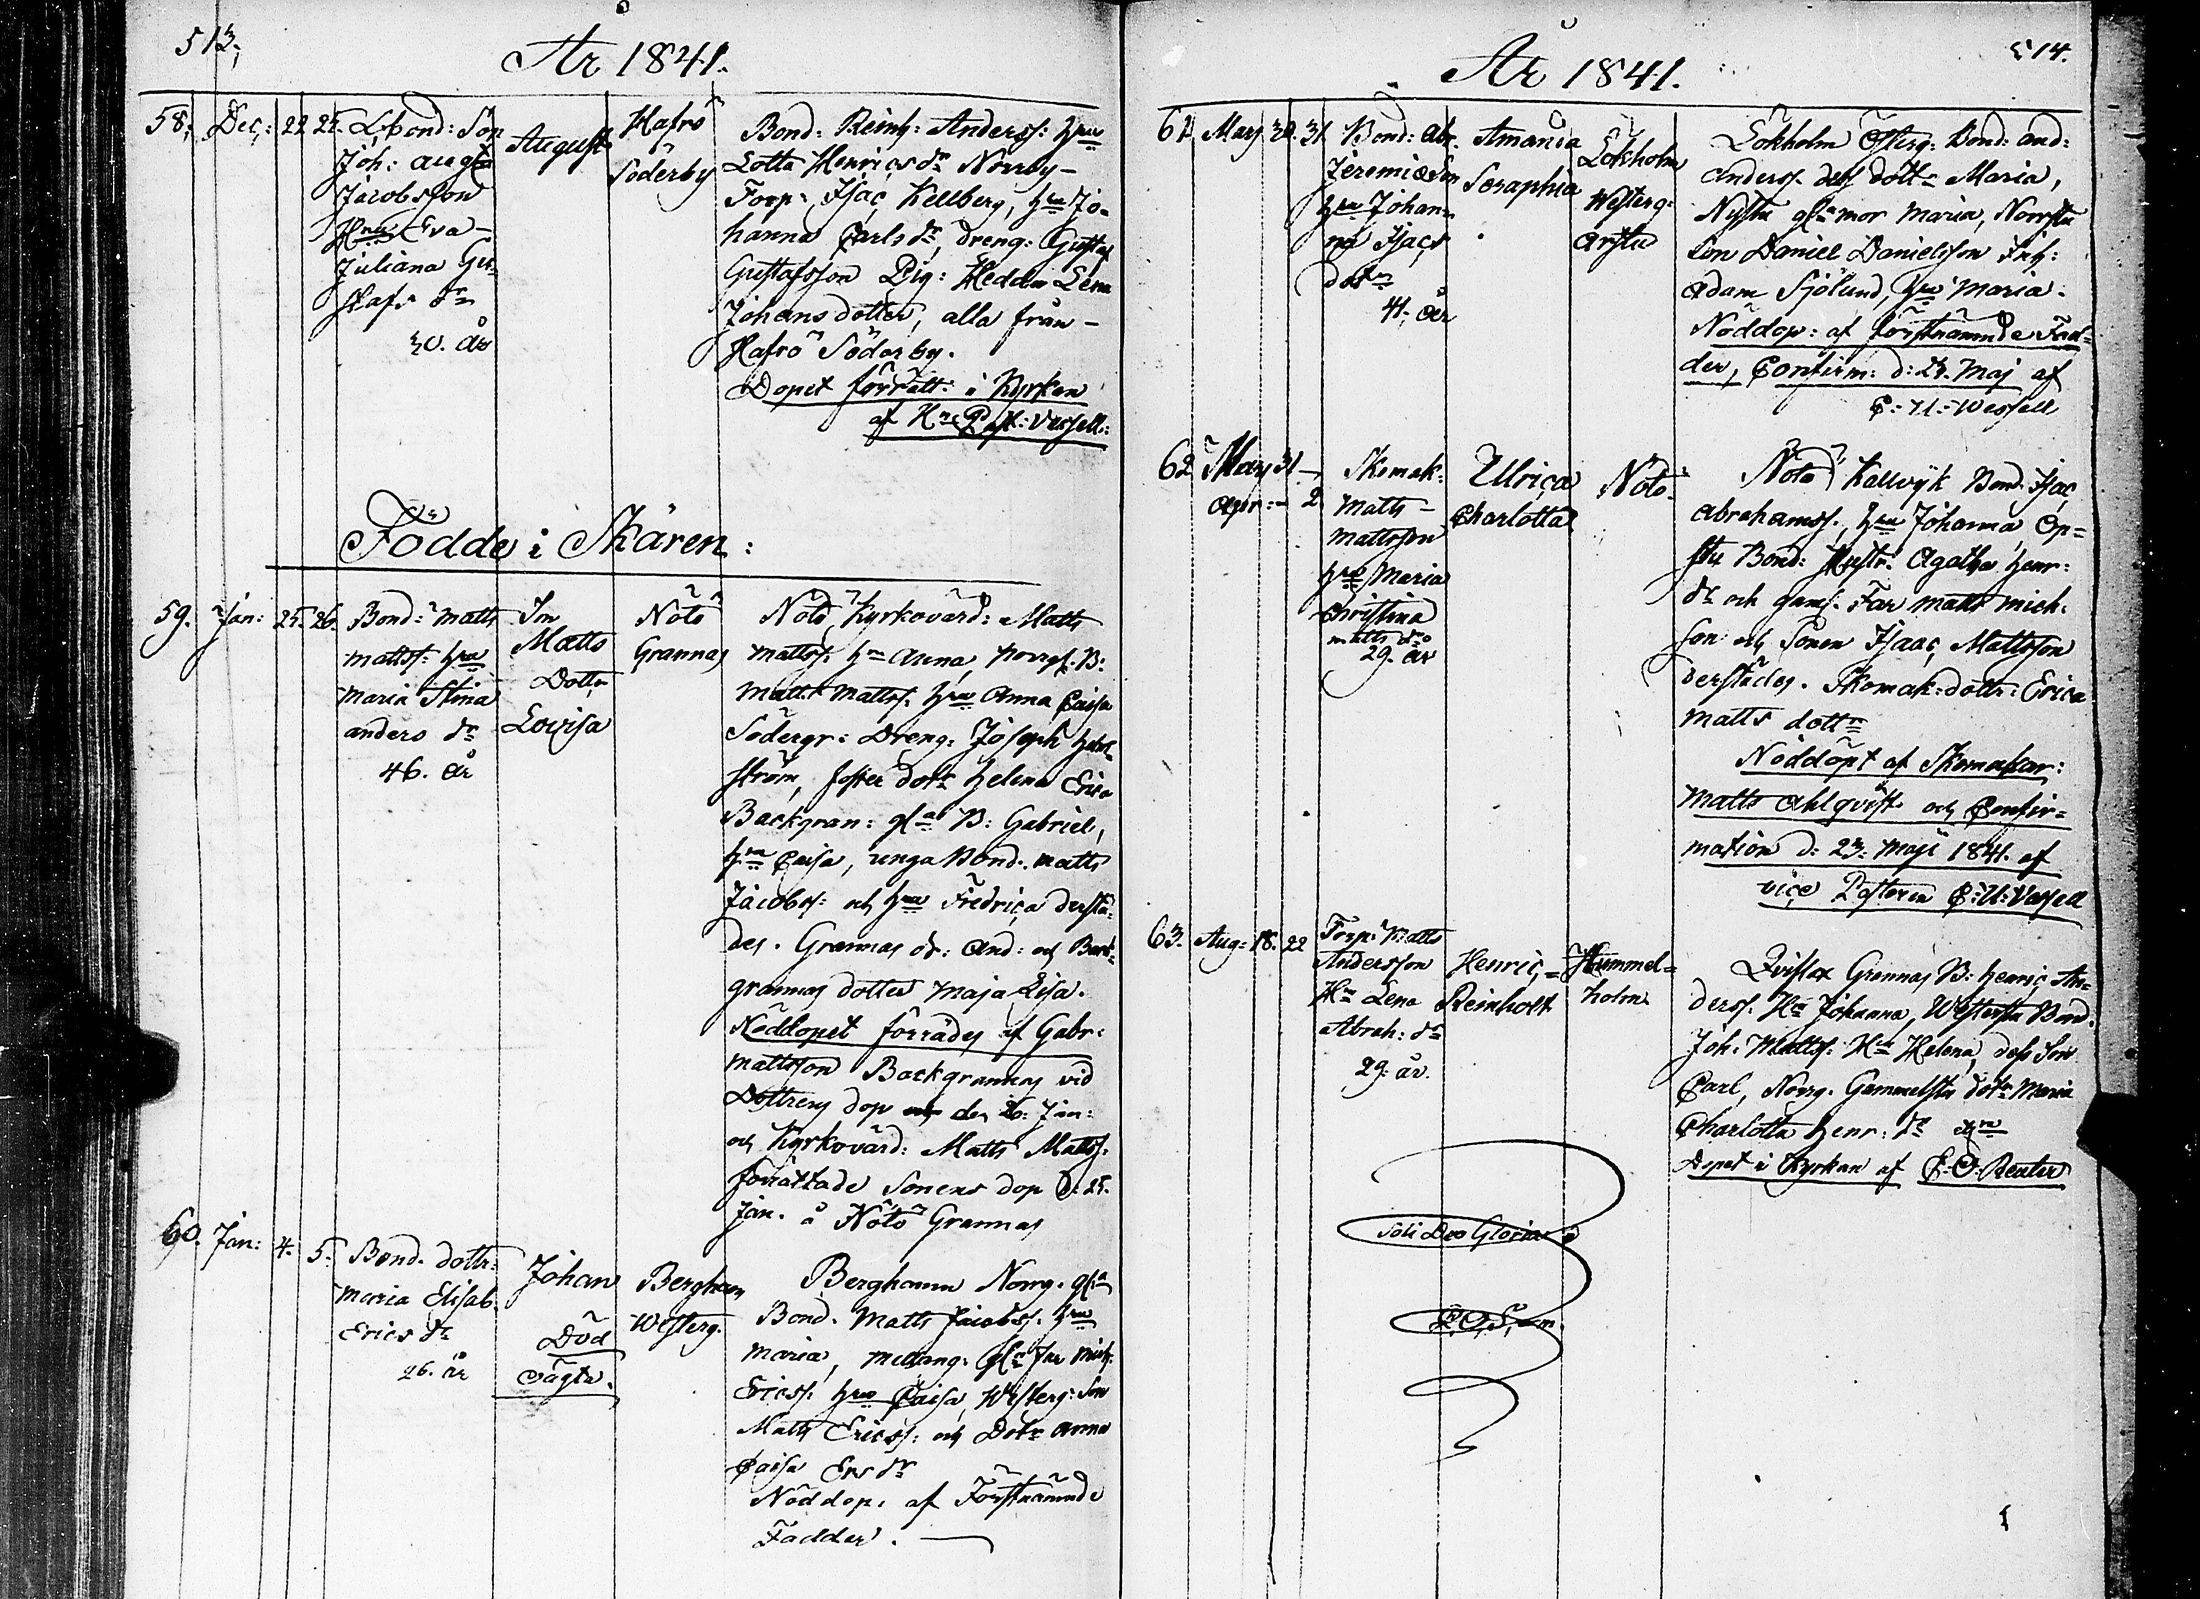 513,
År 1841.
58, Dec: 22 25. L:bond: Son August Hafrö
Joh: August Söderby
Jacobsson
Hru Eva
Juliana Gu-
stafs dr
30. år
Bond: Reinh: Anderss: hru
Lotta Henrics dr Norrby
Torp: Isac Kellberg, hru Jo-
hanna Carls dr, dreng: Gustaf
Gustafsson Pig: Hedda Lena
Johans dotter, alla från
Hafrö Söderby.
Dopet förrätt: i Kyrkan
af
Födde i Skären:
59. Jan: 25. 26. Bond: Matts
mattss: hru
Maria Stina
anders dr
46. år
Son
Matts
Dottr
Lovisa
Nötö
Grannas
Nötö Kyrkovärd: Matts
mattss. hru Anna, Norrg. B:
Matts mattss. hru Anna Caisa
Södergr: Dreng: Joseph
ström, foster dotr Helena Erica
Backgran: gla B: Gabriel,
hru Caisa, unga Bond. matts
Jacobss: och hru Fredrica derstä-
des. Grannas dr: And: och Back-
grannas dotter Maja Lisa.
Nöddopet förrädes af Gabr:
mattsson Backgrannas vid
Dottrens dop den 26: Jan:
och Kyrkovärd: Matts Mattss:
förrättade Sonens dop d: 25.
Jan. å Nötö Grannas
60. Jan: 4. 5. Bond. dottr:
Maria Elisab.
Erics dr
26. år
Johan
Död
oägta.
Bergham
Westerg.
Berghamn Norrg. gla
Bond. Matts Jacobss. hru
Maria, medang: gla Far Mich:
Ericss. hru Caisa, Westerg: Son
Matts Ericss: och Dotr Anna
Caisa Ers dr
Nöddop: af Förstnämnde
Fadder.
514.
År 1841.
61. Mars 30. 31. Bond: Abr.
Jeremiæ Son
hru Johan-
na Isacs
dotr
41. år
Amanda
Seraphia
Lökholm
Westerg:
Lökholm Österg: Bond: And:
Anderss. dess dottr Maria,
Nystu gla mor Maria, Norrstu
Son Daniel Danielsson Inh:
Adam Sjölund, hru Maria.
Nöddop: af förstnämnde Fad-
der, Confirm: d: 23. Maj af
C: U: Wessell
62 Mars 31
Apr: 2.
Skomak:
Matts
Mattsson
hru Maria
Christina
matts dr
29. år
Ulrica
Charlotta
Nötö
Nötö Kallvyk Bond: Isac
Abrahamss., hru Johanna Op-
stu Bond: Hustr: Agatha Henr:
dr och gaml. Far Matts Mich:
son och Sonen Isaac Mattsson
derstädes. Skomak: dottr: Erica
Matts dottr
Nöddöpt af Skomakar:
Matts Ahlqvist och Confir-
mation d: 23: Maji 1841. af
vice Pastoren C: U: Wessell
63. Aug: 18. 22 Torp: Matts
Andersson
Hru Lena
Abrah: dr
29. år.
Henric
Reinholt
Hummel-
holm
Qvistex Grannas B: Henric An-
derss. Hru Johanna, Westerstu Bond.
Joh: Mattss: Hru Helena, dess Son
Carl, Norrg. Gammelstu dotr Maria
Charlotta Henr: dr
Dopet i Kyrkan af C: O: Reuter
Soli Deo Gloria